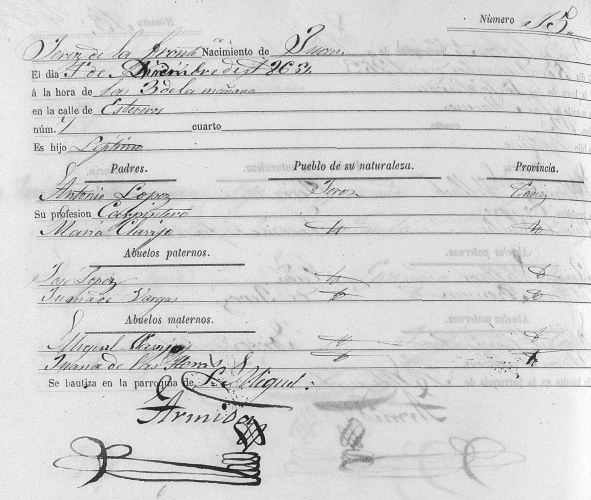 Número 15.
Jerez de la Frontª Nacimiento de Juan
El dia 1º de Diciembre de 1863.
á la hora de las 3 de la mañana
en la calle de Esteves
núm. 7 cuarto
Es hijo Léptimo
Padres. Pueblo de su naturaleza. Provincia.
Antonio Lopez Jerez Cadiz
Su profesion Carpintero
Maria Clavijo
Abuelos paternos.
Jose Lopez
Juana de Vargas
Abuelos maternos.
Miguel Clavijo
Juana de las Heras
Se bautiza en la parroquia de S. Miguel.